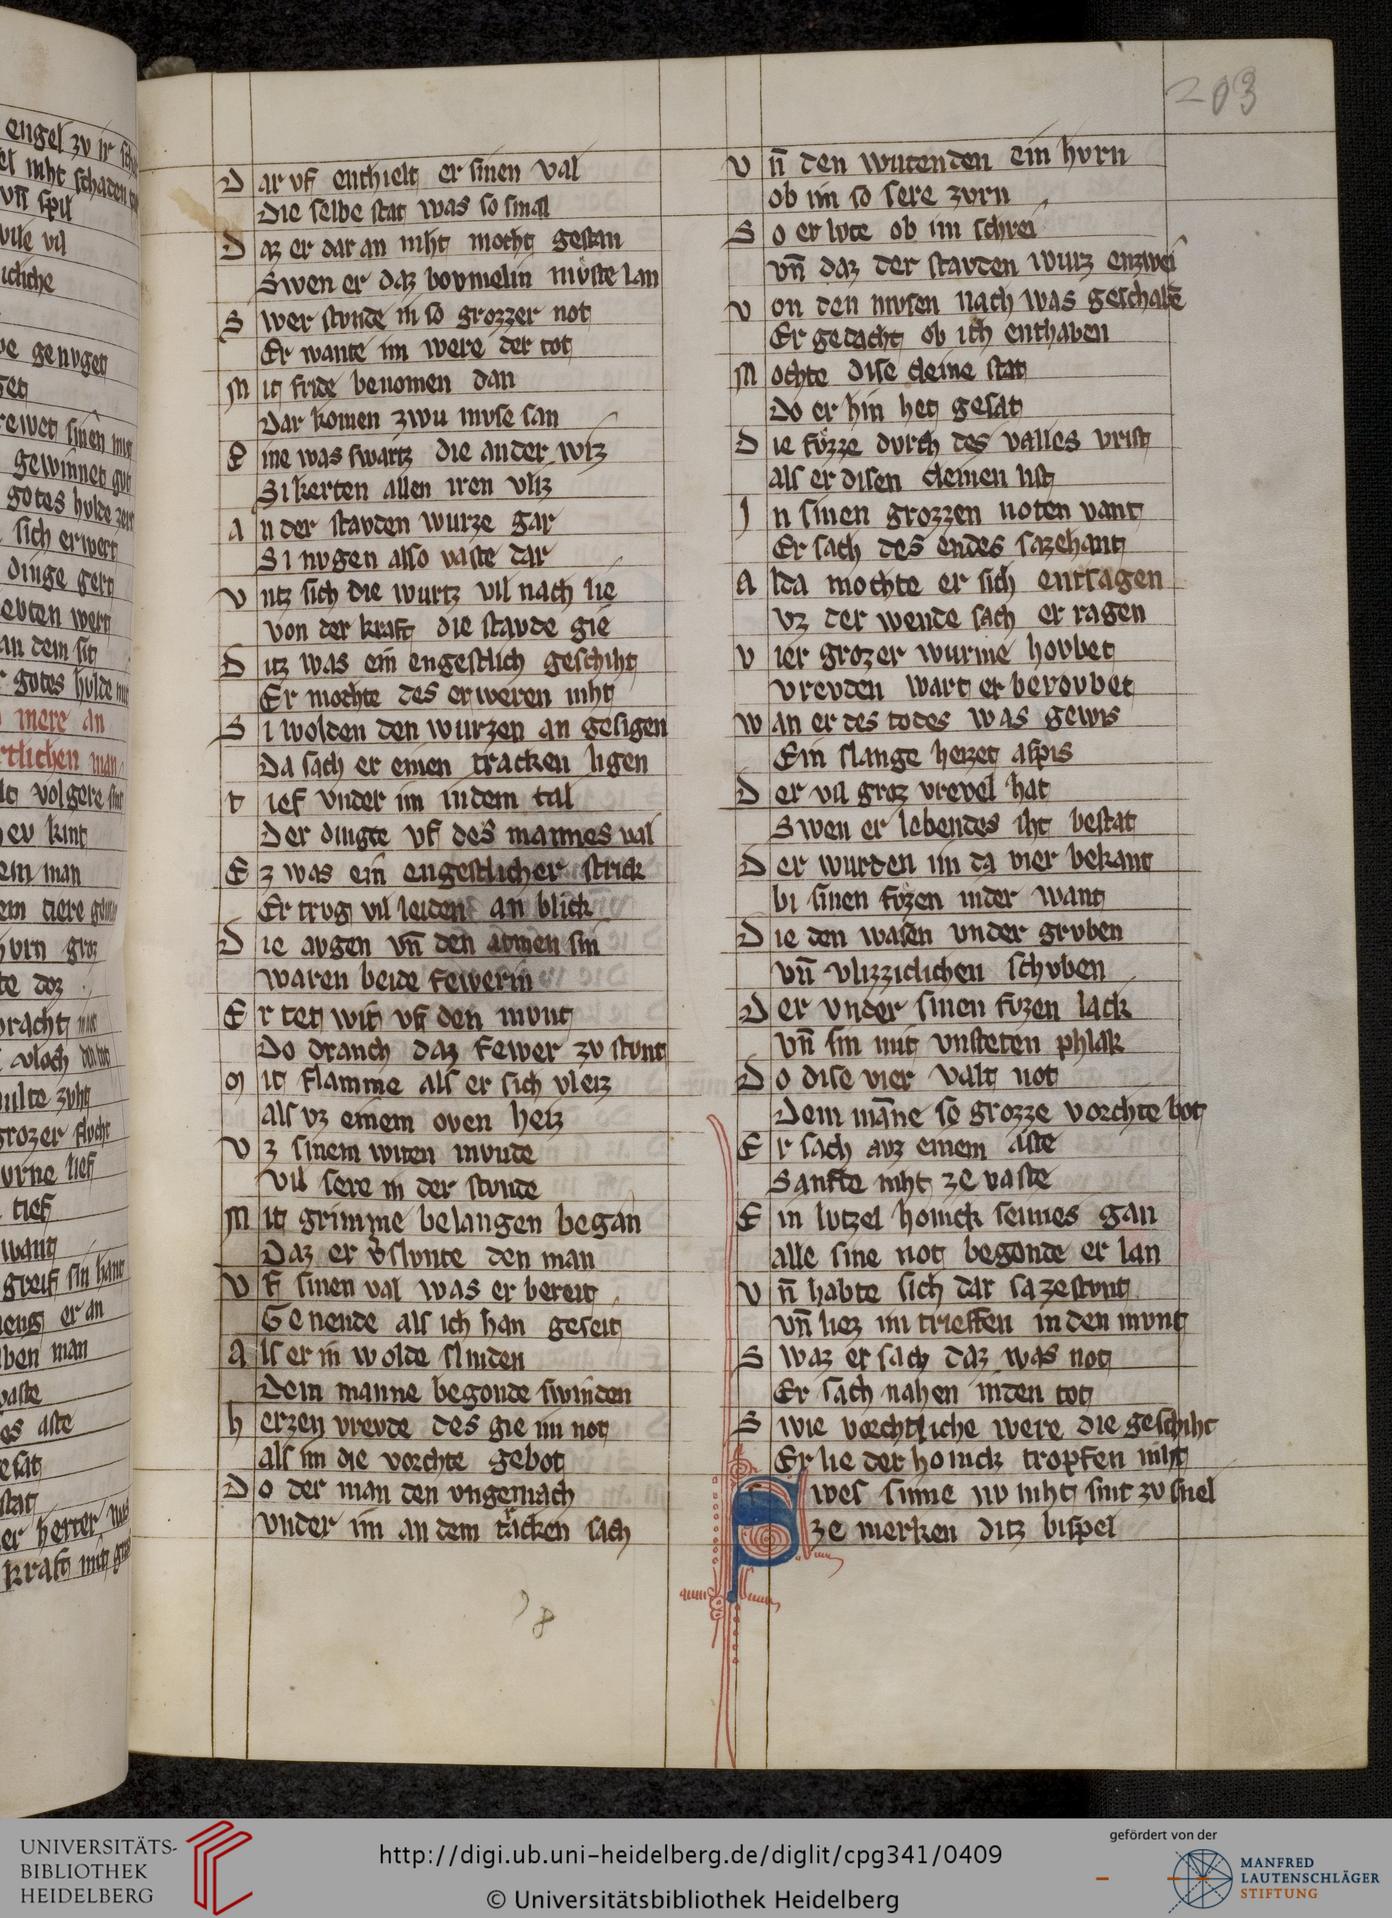 203
Dar vf enthielt er sinen val
Die selbe stat was so smal
Daz er dar an niht mocht gestan
Swen er daz bovmelin mvste lan
Swer stvnde in so grozzer not
Er wante im were der tot
Mit fride benomen dan
Dar komen zwu mvse san
Eine was swartz die ander wiz
Si kerten allen iren vliz
An der stavden wurze gar
Si nvgen also vaste dar
Vntz sich die wurtz vil nach lie
Von der kraft die stavde gie
Ditz was ein engestlich geschiht
Er mochte des erweren niht
Si wolden den wurzen an gesigen
Da sach er einen tracken ligen
tief vnder im in dem tal
Der dingte vf des mannes val
Ez was ein engestlicher strick
Er trvg vil leiden an blick
Die avgen vn̄ den atmen sin
waren beide fewerin
Er tet wit vf den mvnt
Do dranch daz fewer zv stvnt
Mit flamme als er sich vleiz
als vz einem oven heiz
Vz sinem witen mvnde
Vil sere in der stvnde
Mit grimme belangen began
Daz er v̄slvnte den man
Vf sinen val was er bereit
Genende als ich han geseit
Als er in wolde slinden
Dem manne begonde swinden
herzen vrevde des gie im not
als im die vorchte gebot
Do der man den vngemach
vnder im an dem tracken sach
Vn̄ den wutenden ein hvrn
ob im so sere zvrn
So er lvte ob im schrei
vn̄ daz der stavden wurz enzwei
Von den mvsen nach was geschabē
Er gedacht ob ich enthaben
Mochte dise cleine stat
Do er hin het gesat
Die fvzze dvrch des valles vrist
als er disen cleinen list
In sinen grozzen noten vant
Er sach des endes sazehant
Alda mochte er sich entsagen
vz der wende sach er ragen
Vier grozer wurme hovbet
vrevden wart er berovbet
wan er des todes was gewis
Ein slange heizet aspis
Der vil groz vrevel hat
Swen er lebendes iht bestat
Der wurden im da vier bekant
bi sinen fvzen in der want
Die den wasen vnder grvben
vn̄ vlizziclichen schvben
Der vnder sinen fvzen lack
vn̄ sin mit vnsteten phlak
Do dise vier valt not
Dem māne so grozze vorchte bot
Er sach avz einem aste
Sanfte niht ze vaste
Ein lvtzel honick seimes gan
alle sine not begonde er lan
Vn̄ habte sich dar sazestvnt
vn̄ liez im trieffen in den mvnt
Swaz er sach daz was not
Er sach nahen in den tot
Swie vorchtliche were die geschiht
Er lie der honick tropfen niht
Swes sinne nv niht sint zv snel
ze merken ditz bispel
UNIVERSITÄTS-
BIBLIOTHEK
HEIDELBERG
http://digi.ub.uni-heidelberg.de/diglit/cpg341/0409
© Universitätsbibliothek Heidelberg
gefördert von der
MANFRED
LAUTENSCHLÄGER
STIFTUNG